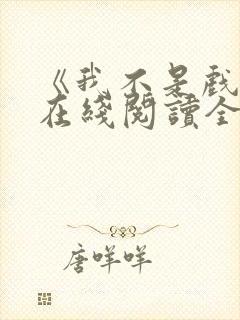 《我不是戲
在綫閱讀全
唐咩咩